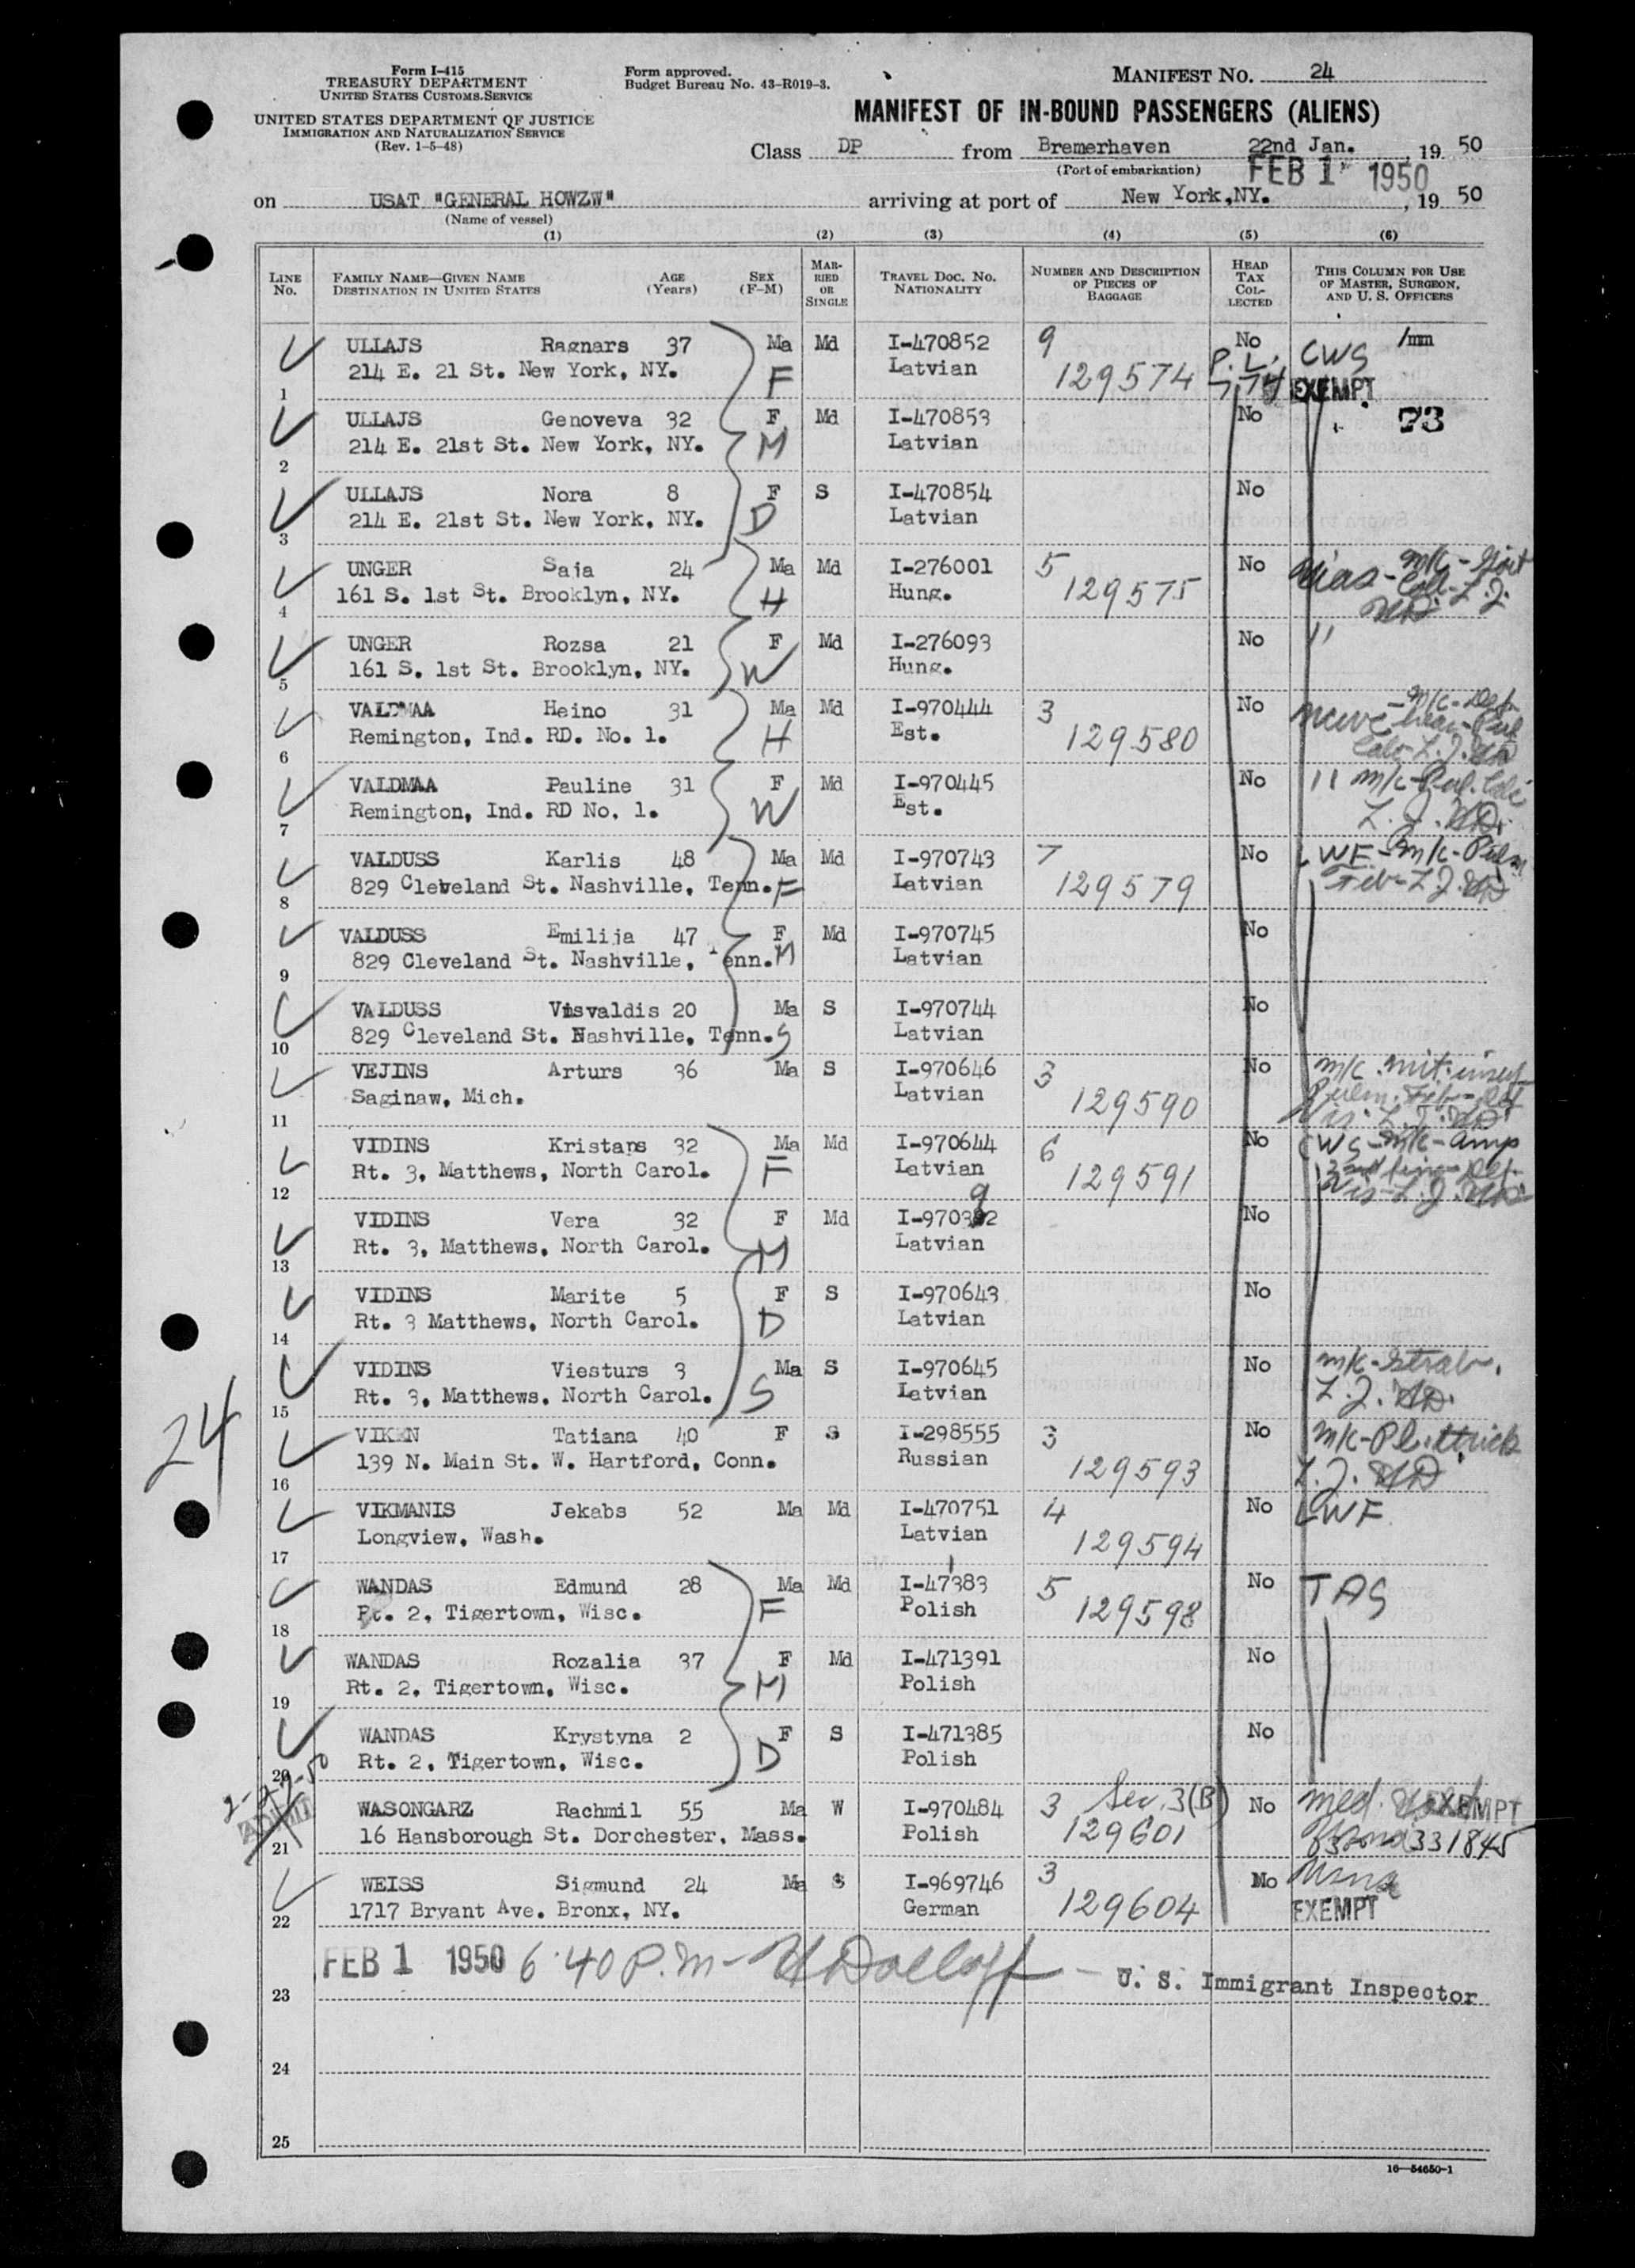 Form I-415
TREASURY DEPARTMENT
UNITED STATES CUSTOMS SERVICE
UNITED STATES DEPARTMENT OF JUSTICE
IMMIGRATION AND NATURALIZATION SERVICE
(Rev. 1-5-48)
Form approved.
Budget Bureau No. 43-R019-3.
MANIFEST NO. 24
MANIFEST OF IN-BOUND PASSENGERS (ALIENS)
Class DP from Bremerhaven 22nd Jan., 19 50
(Port of embarkation) FEB 1 1950
on USAT "GENERAL HOWZW" arriving at port of New York,NY., 19 50
(Name of vessel)
(1) (2) (3) (4) (5) (6)
LINE NO. FAMILY NAME—GIVEN NAME DESTINATION IN UNITED STATES AGE (Years) SEX (F-M) MARRIED OR SINGLE TRAVEL DOC. NO. NATIONALITY NUMBER AND DESCRIPTION OF PIECES OF BAGGAGE HEAD TAX COLLECTED THIS COLUMN FOR USE OF MASTER, SURGEON, AND U. S. OFFICERS
ULLAJS Ragnars 37 Ma Md I-470852 9 No CWS /mm
1 214 E. 21 St. New York, NY. F Latvian 129574 P.L. 774 EXEMPT
ULLAJS Genoveva 32 F Md I-470853 No 73
2 214 E. 21st St. New York, NY. M Latvian
ULLAJS Nora 8 F S I-470854 No
3 214 E. 21st St. New York, NY. D Latvian
UNGER Saja 24 Ma Md I-276001 5 No Hias - m/c -
4 161 S. 1st St. Brooklyn, NY. H Hung. 129575 L.J. HD.
UNGER Rozsa 21 F Md I-276093 No "
5 161 S. 1st St. Brooklyn, NY. W Hung.
VALDMAA Heino 31 Ma Md I-970444 3 No NCWC - m/c - Def
6 Remington, Ind. RD. No. 1. H Est. 129580 L.J. HD
VALDMAA Pauline 31 F Md I-970445 No " m/c - Pul.
7 Remington, Ind. RD No. 1. W Est. L.J. HD.
VALDUSS Karlis 48 Ma Md I-970743 7 No LWF - m/c - Pulm
8 829 Cleveland St. Nashville, Tenn. F Latvian 129579 Fib - L.J. HD
VALDUSS Emilija 47 F Md I-970745 No
9 829 Cleveland St. Nashville, Tenn. M Latvian
VALDUSS Visvaldis 20 Ma S I-970744 No
10 829 Cleveland St. Nashville, Tenn. S Latvian
VEJINS Arturs 36 Ma S I-970646 3 No m/c mit. insuf
11 Saginaw, Mich. Latvian 129590 Pulm. Fib - Def Vis. L.J. HD
VIDINS Kristaps 32 Ma Md I-970644 6 No CWS - m/c - amp
12 Rt. 3, Matthews, North Carol. F Latvian 129591 2nd fing - Def. Vis - L.J. HD
VIDINS Vera 32 F Md I-970392 9 No
13 Rt. 3, Matthews, North Carol. M Latvian
VIDINS Marite 5 F S I-970643 No
14 Rt. 3 Matthews, North Carol. D Latvian
VIDINS Viesturs 3 Ma S I-970645 No m/c - Strab.
15 Rt. 3, Matthews, North Carol. S Latvian L.J. HD.
24
VIKEN Tatiana 40 F S I-298555 3 No m/c - Pl. thick
16 139 N. Main St. W. Hartford, Conn. Russian 129593 L.J. HD
VIKMANIS Jekabs 52 Ma Md I-470751 4 No LWF
17 Longview, Wash. Latvian 129594
WANDAS Edmund 28 Ma Md I-471383 5 No TAS
18 Rt. 2, Tigertown, Wisc. F Polish 129598
WANDAS Rozalia 37 F Md I-471391 No
19 Rt. 2, Tigertown, Wisc. M Polish
WANDAS Krystyna 2 F S I-471385 No
20 Rt. 2, Tigertown, Wisc. D Polish
2-2-50 ADMIT
WASONGARZ Rachmil 55 Ma W I-970484 3 Sec. 3(B) No Med. EXEMPT
21 16 Hansborough St. Dorchester, Mass. Polish 129601 331845
WEISS Sigmund 24 Ma S I-969746 3 Mo Usna
22 1717 Bryant Ave. Bronx, NY. German 129604 EXEMPT
FEB 1 1950 6:40 P.m - HDolloff - U. S. Immigrant Inspector
23
24
25
16—54650-1